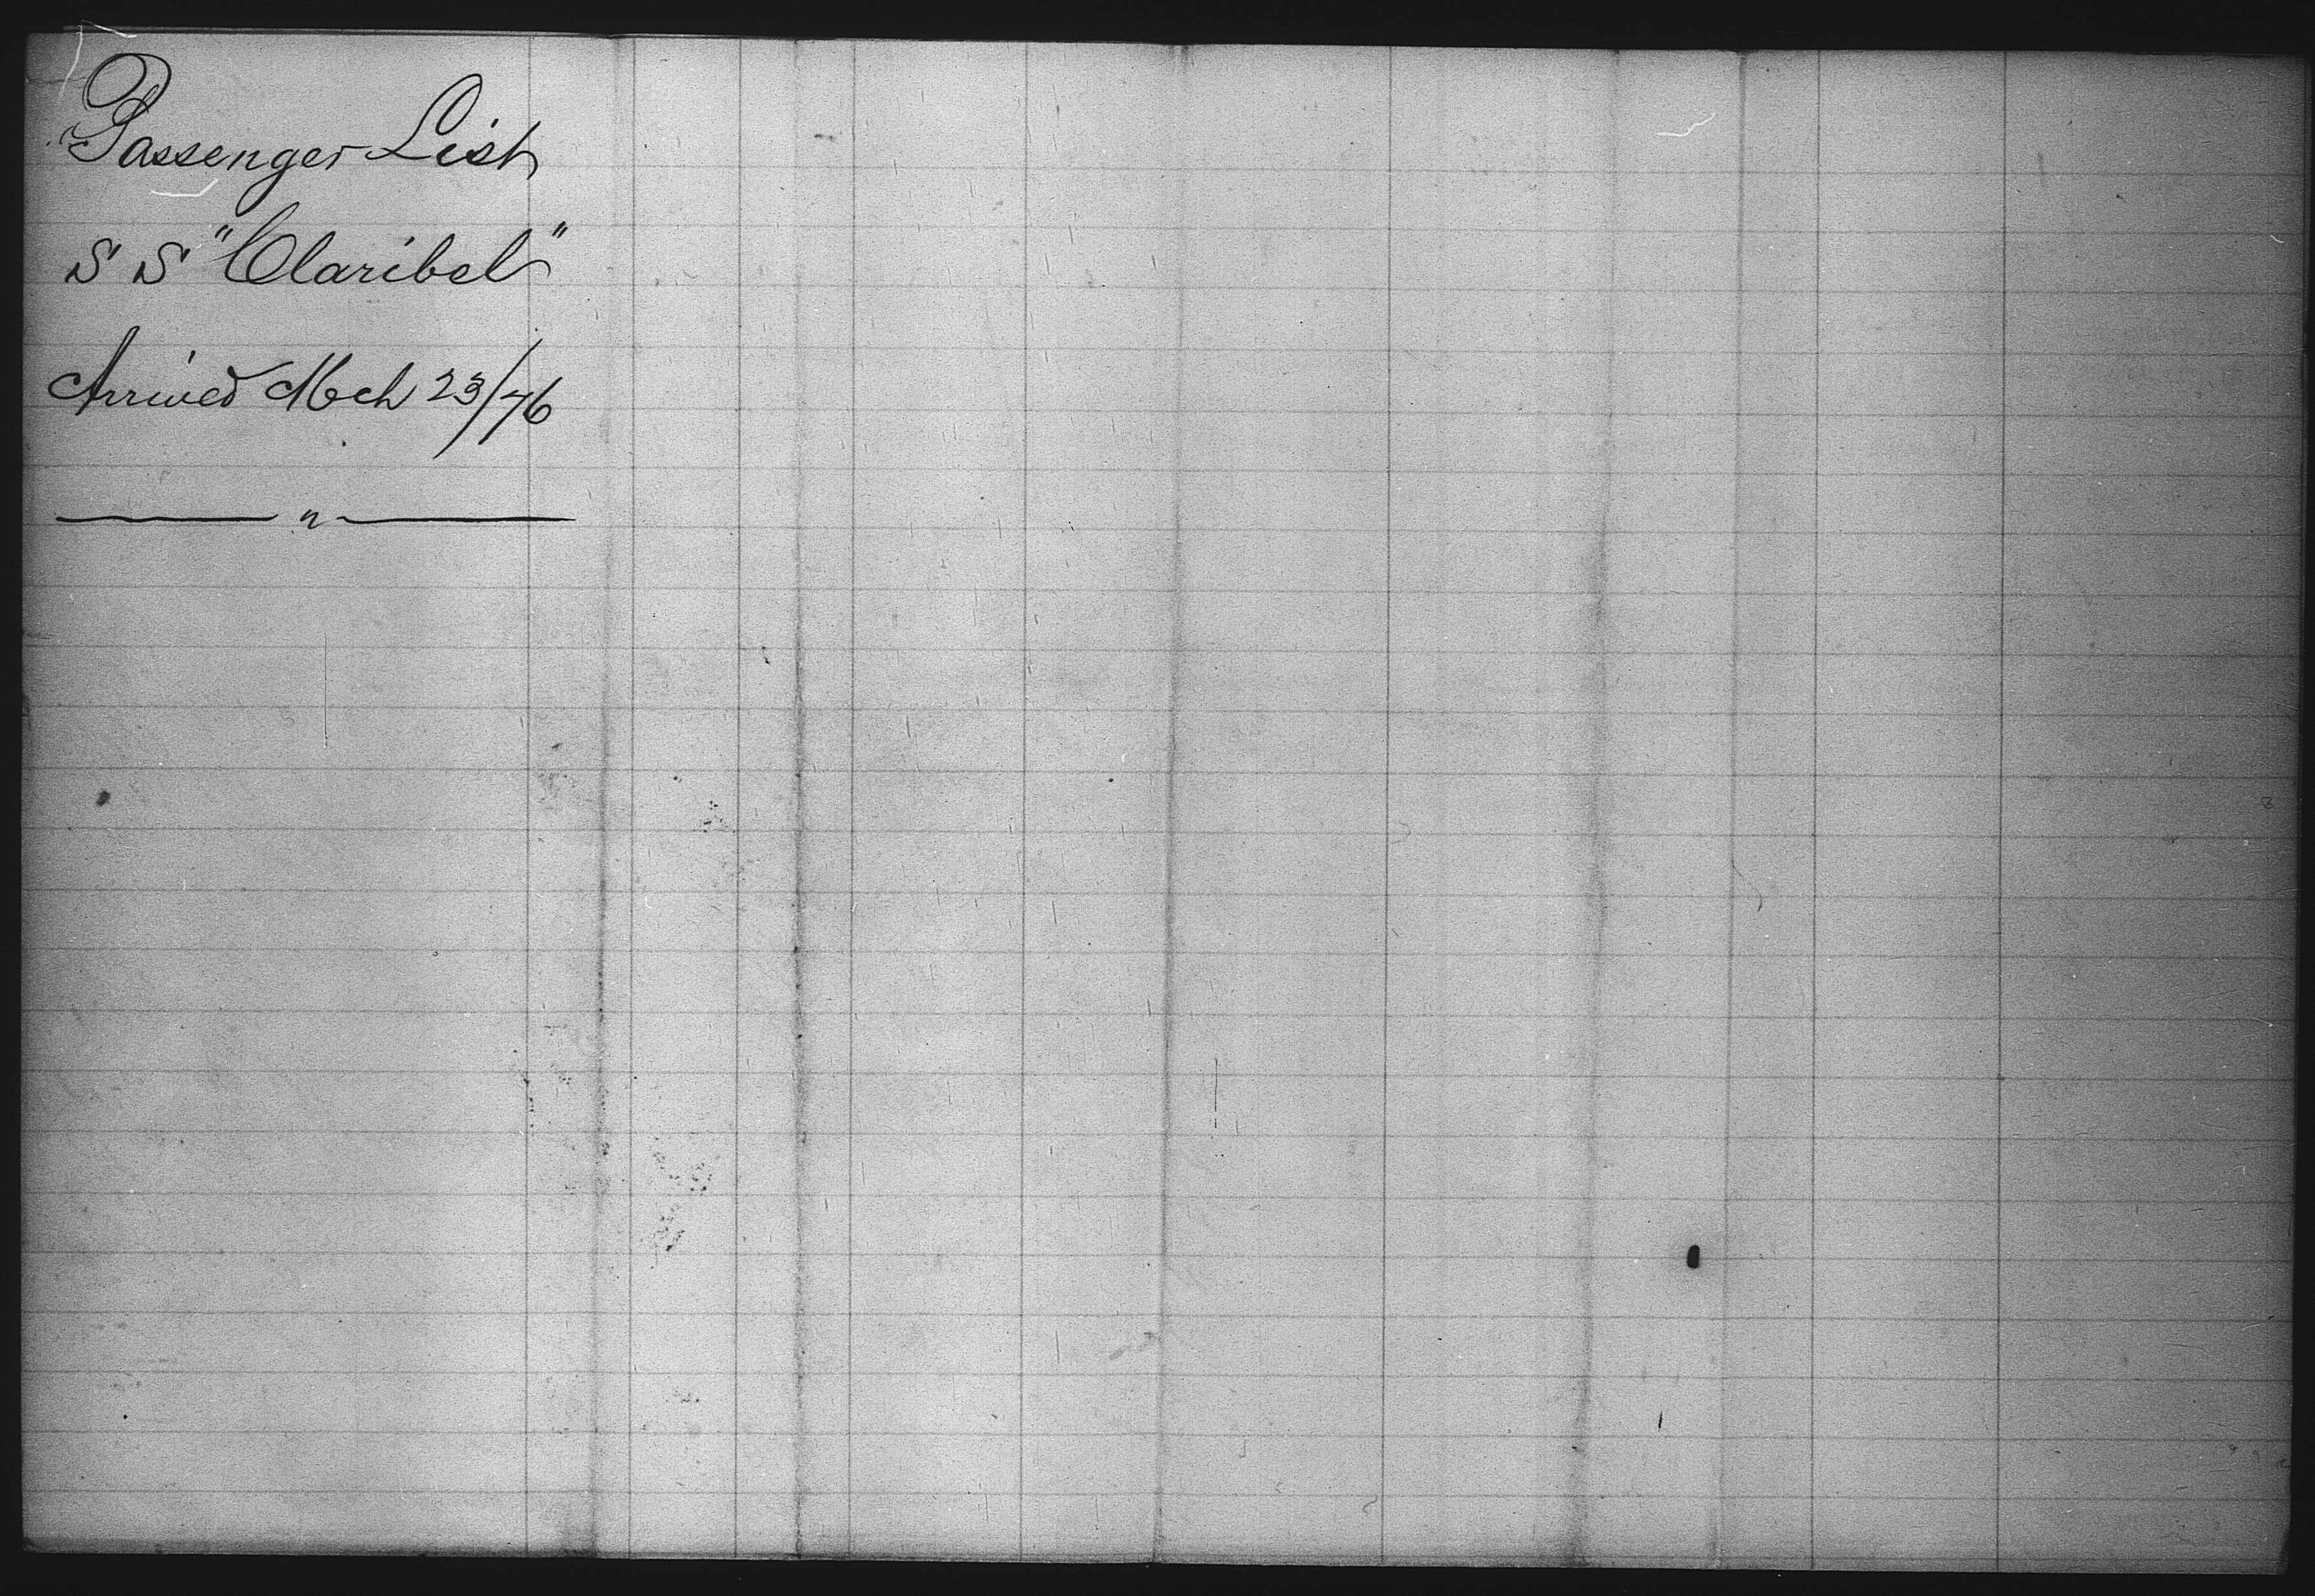 Passenger List
S S "Claribel"
Arrived Mch 23/76